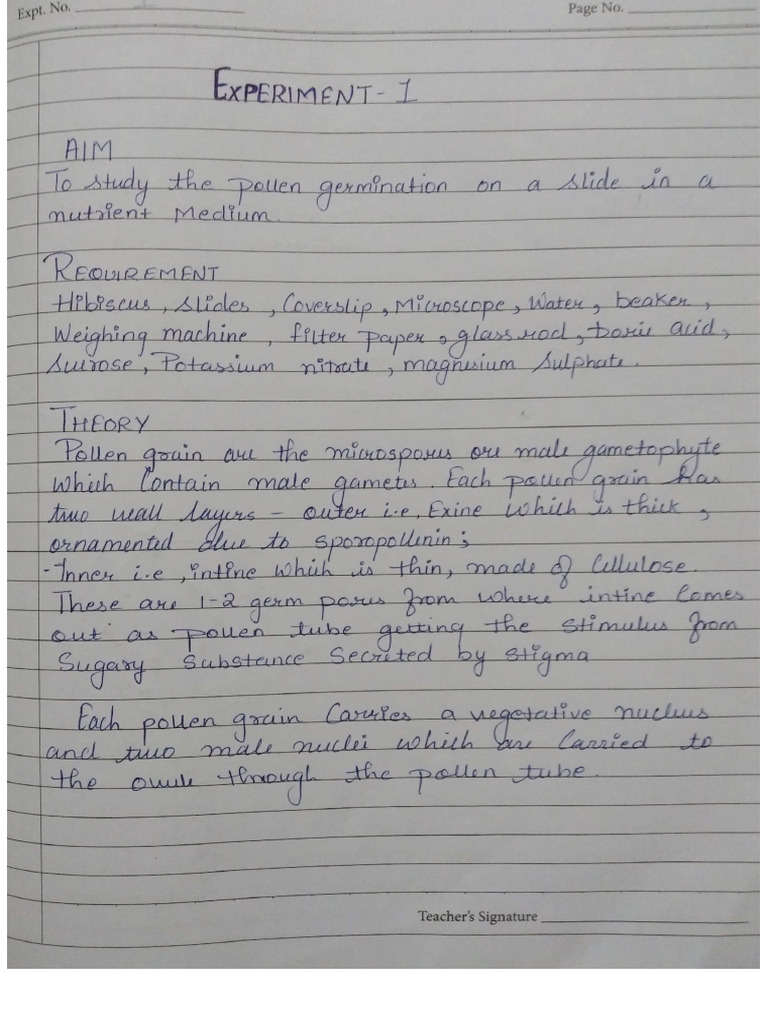 Expt. No.
Page No.
EXPERIMENT-1
AIM
To study the pollen germination on a slide in a
nutrient Medium.
REQUIREMENT
Hibiscus, slides, Coverslip, Microscope, Water, beaker,
Weighing machine, filter paper, glass rod, boric acid,
Sucrose, Potassium nitrate, magnesium Sulphate.
THEORY
Pollen grain are the microspores ore male gametophyte
which Contain male gametes. Each pollen grain has
two wall layers - outer i.e, Exine which is thick,
ornamented due to sporopollenin;
-Inner i.e, intine which is thin, made of Cellulose.
These are 1-2 germ pores from where intine Comes
out as pollen tube getting the stimulus from
Sugary Substance Secreted by stigma
Each pollen grain Carries a vegetative nucleus
and two male nuclei which are Carried to
the ovule through the pollen tube.
Teacher's Signature